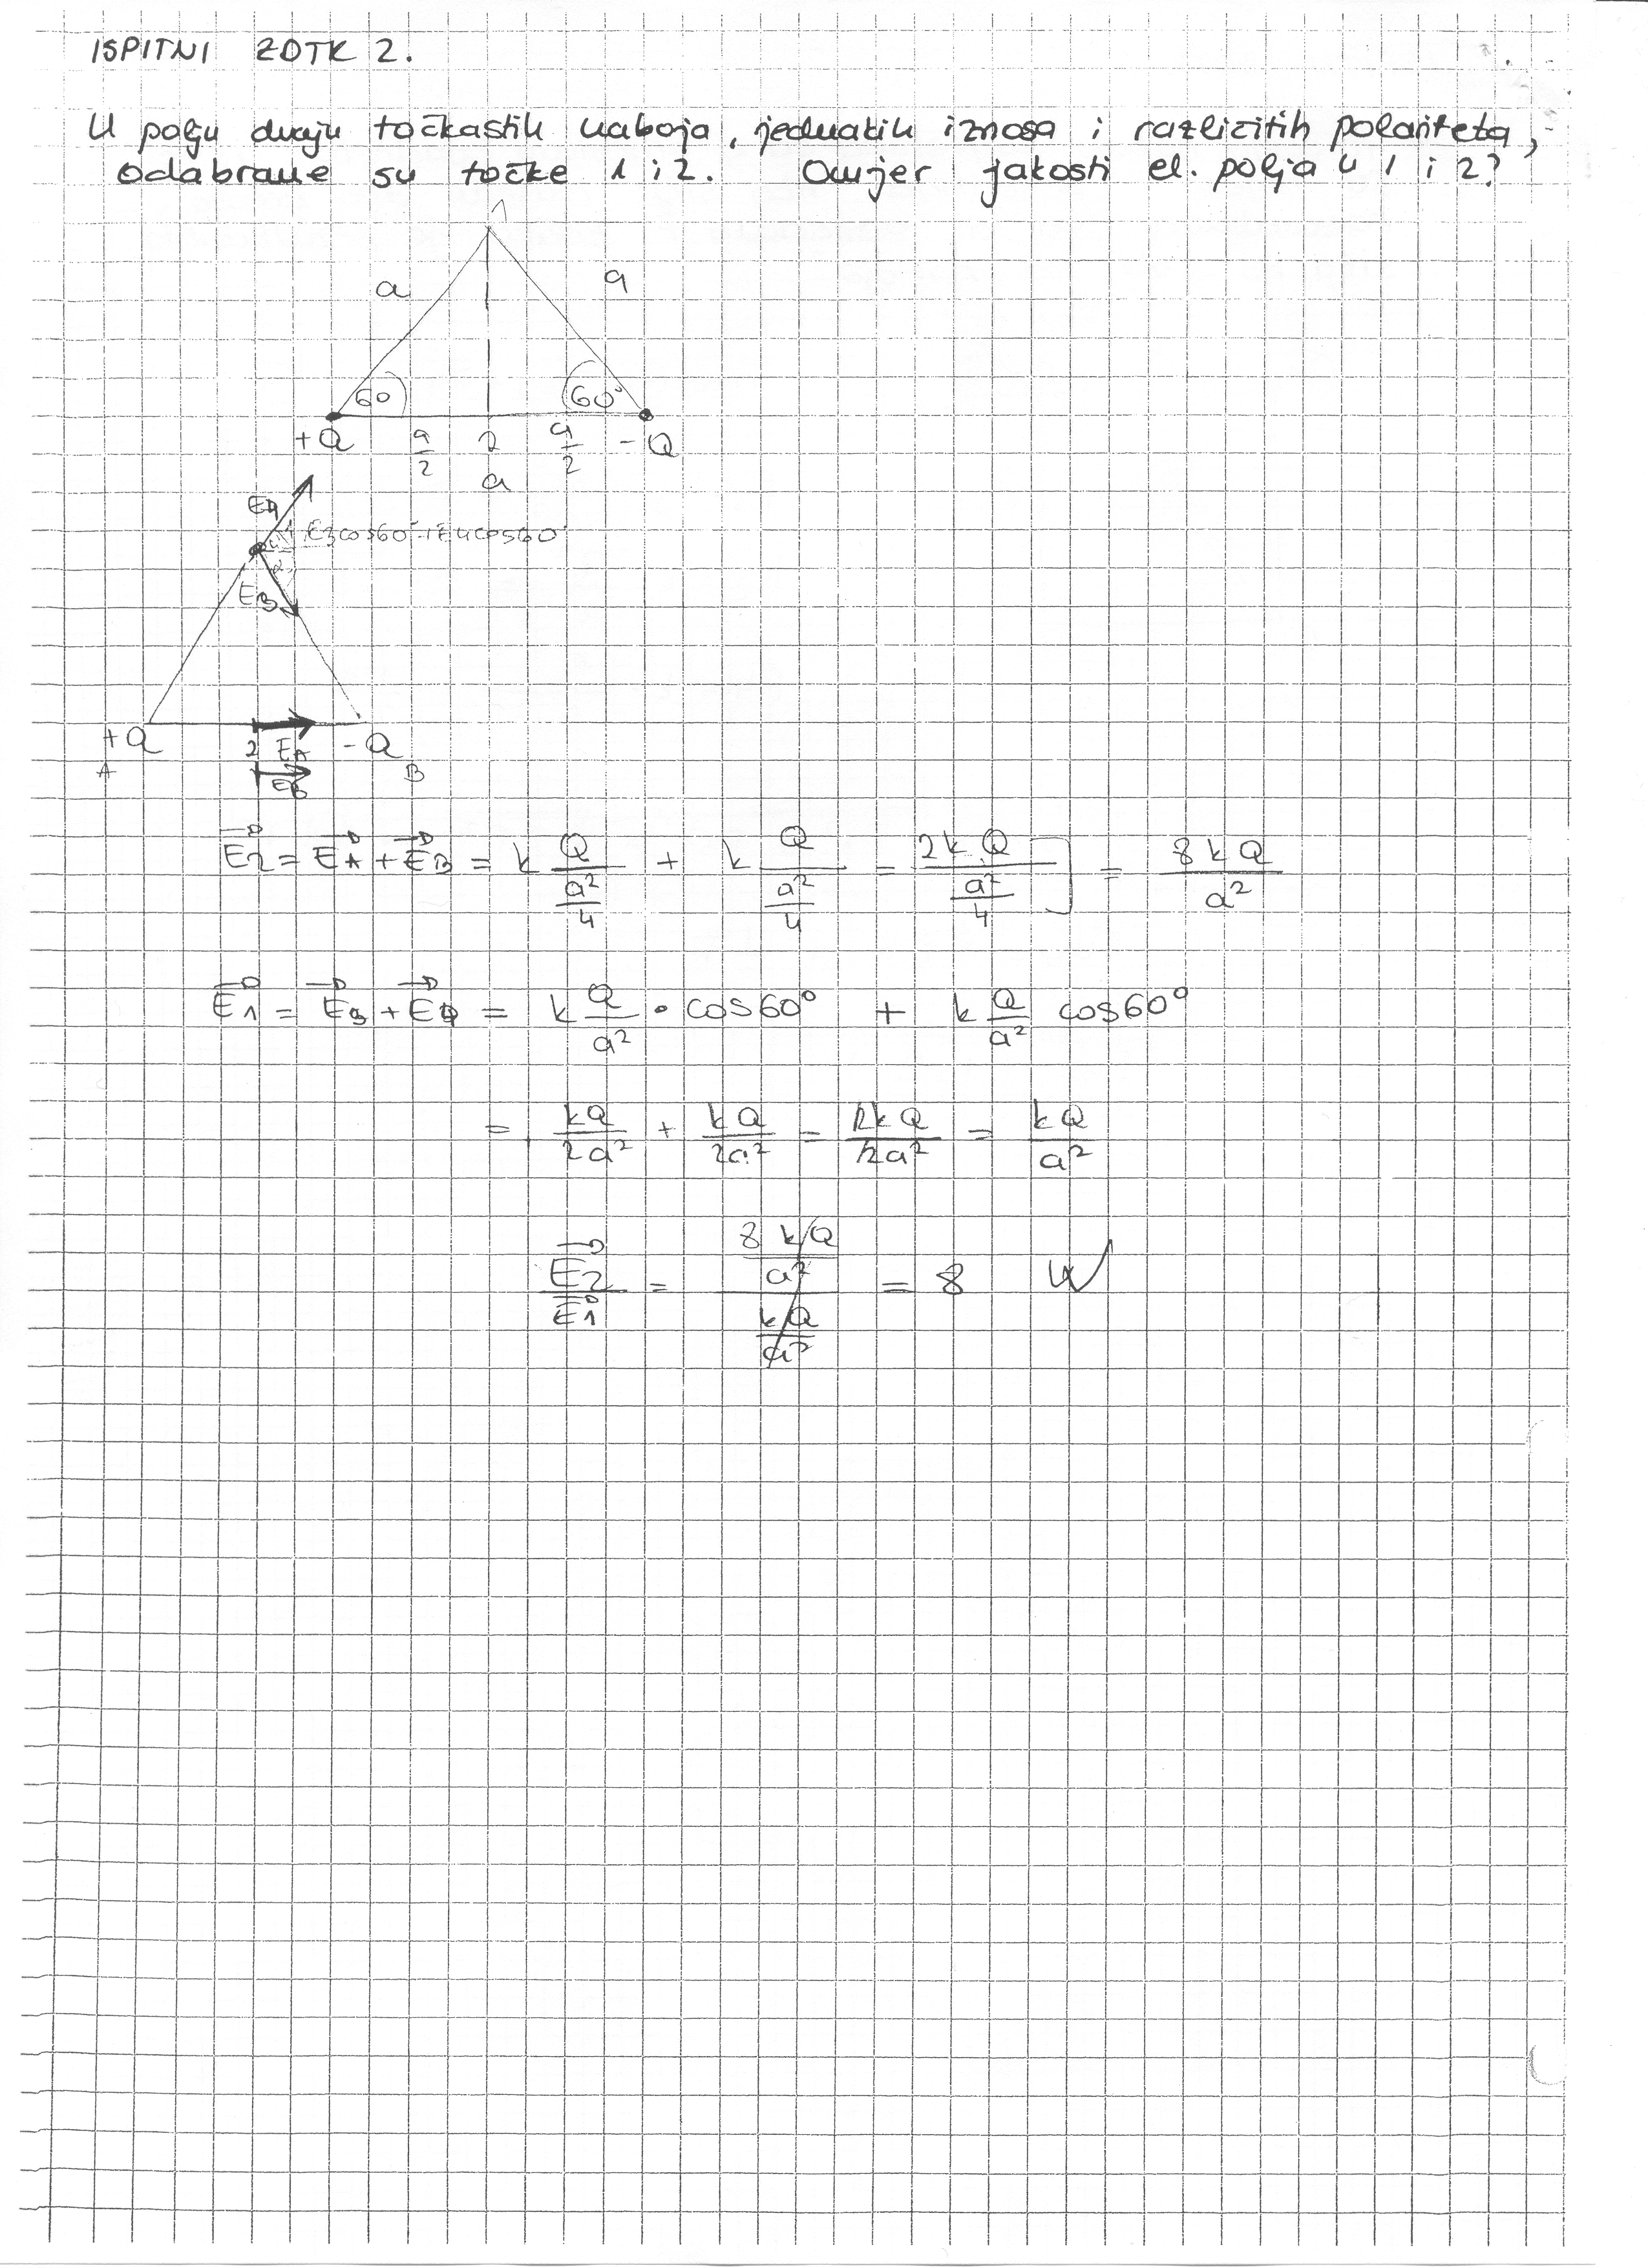 ISPITNI ZDTK 2.
U polju dvaju točkastih naboja, jednakih iznosa i različitih polariteta,
odabrane su točke 1 i 2. Omjer jakosti el. polja u 1 i 2?
1
a a
60 60°
+Q a/2 2 a/2 -Q
a
E4
E3cos60°+E4cos60°
E3
+Q 2 EA -Q
A EB B
E2 = EA + EB = k Q/(a²/4) + k Q/(a²/4) = 2kQ/(a²/4) = 8kQ/a²
E1 = E3 + E4 = k Q/a² · cos60° + k Q/a² cos60°
= kQ/2a² + kQ/2a² = 2kQ/2a² = kQ/a²
E2/E1 = (8kQ/a²)/(kQ/a²) = 8